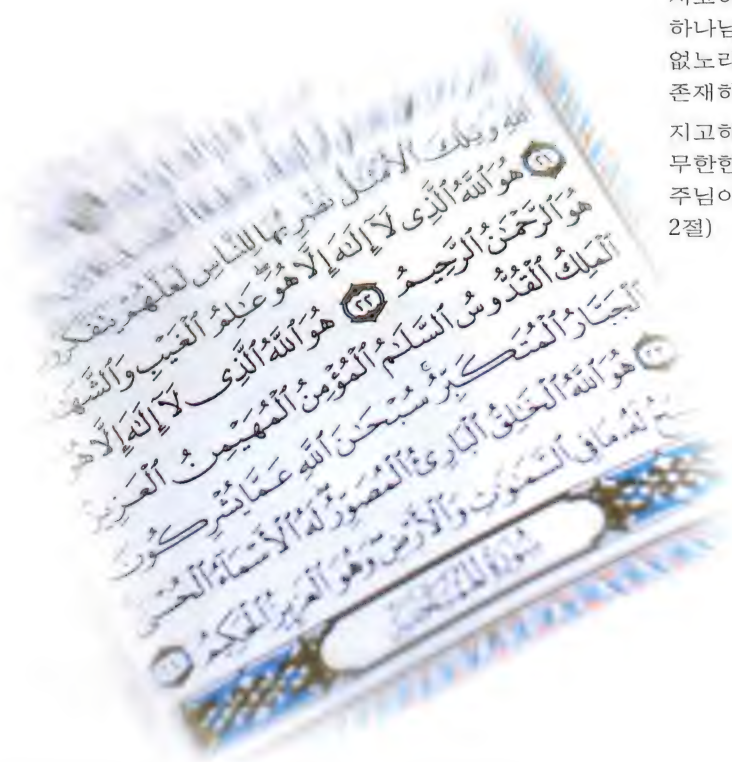 하나님
없노라
존재하
지고하
무한한
주님이
2절)
ٱللَّهِ وَتِلْكَ ٱلْأَمْثَٰلُ نَضْرِبُهَا لِلنَّاسِ لَعَلَّهُمْ يَتَفَكَّرُونَ
٢١ هُوَ ٱللَّهُ ٱلَّذِى لَآ إِلَٰهَ إِلَّا هُوَ عَٰلِمُ ٱلْغَيْبِ وَٱلشَّهَ
هُوَ ٱلرَّحْمَٰنُ ٱلرَّحِيمُ ٢٢ هُوَ ٱللَّهُ ٱلَّذِى لَآ إِلَٰهَ إِلَّا هُوَ
ٱلْمَلِكُ ٱلْقُدُّوسُ ٱلسَّلَٰمُ ٱلْمُؤْمِنُ ٱلْمُهَيْمِنُ ٱلْعَزِيزُ
ٱلْجَبَّارُ ٱلْمُتَكَبِّرُ سُبْحَٰنَ ٱللَّهِ عَمَّا يُشْرِكُونَ
٢٣ هُوَ ٱللَّهُ ٱلْخَٰلِقُ ٱلْبَارِئُ ٱلْمُصَوِّرُ لَهُ ٱلْأَسْمَآءُ ٱلْحُسْنَ
لَهُۥ مَا فِى ٱلسَّمَٰوَٰتِ وَٱلْأَرْضِ وَهُوَ ٱلْعَزِيزُ ٱلْحَكِيمُ ٢٤
سُورَةُ ٱلْمُمْتَحَنَةِ